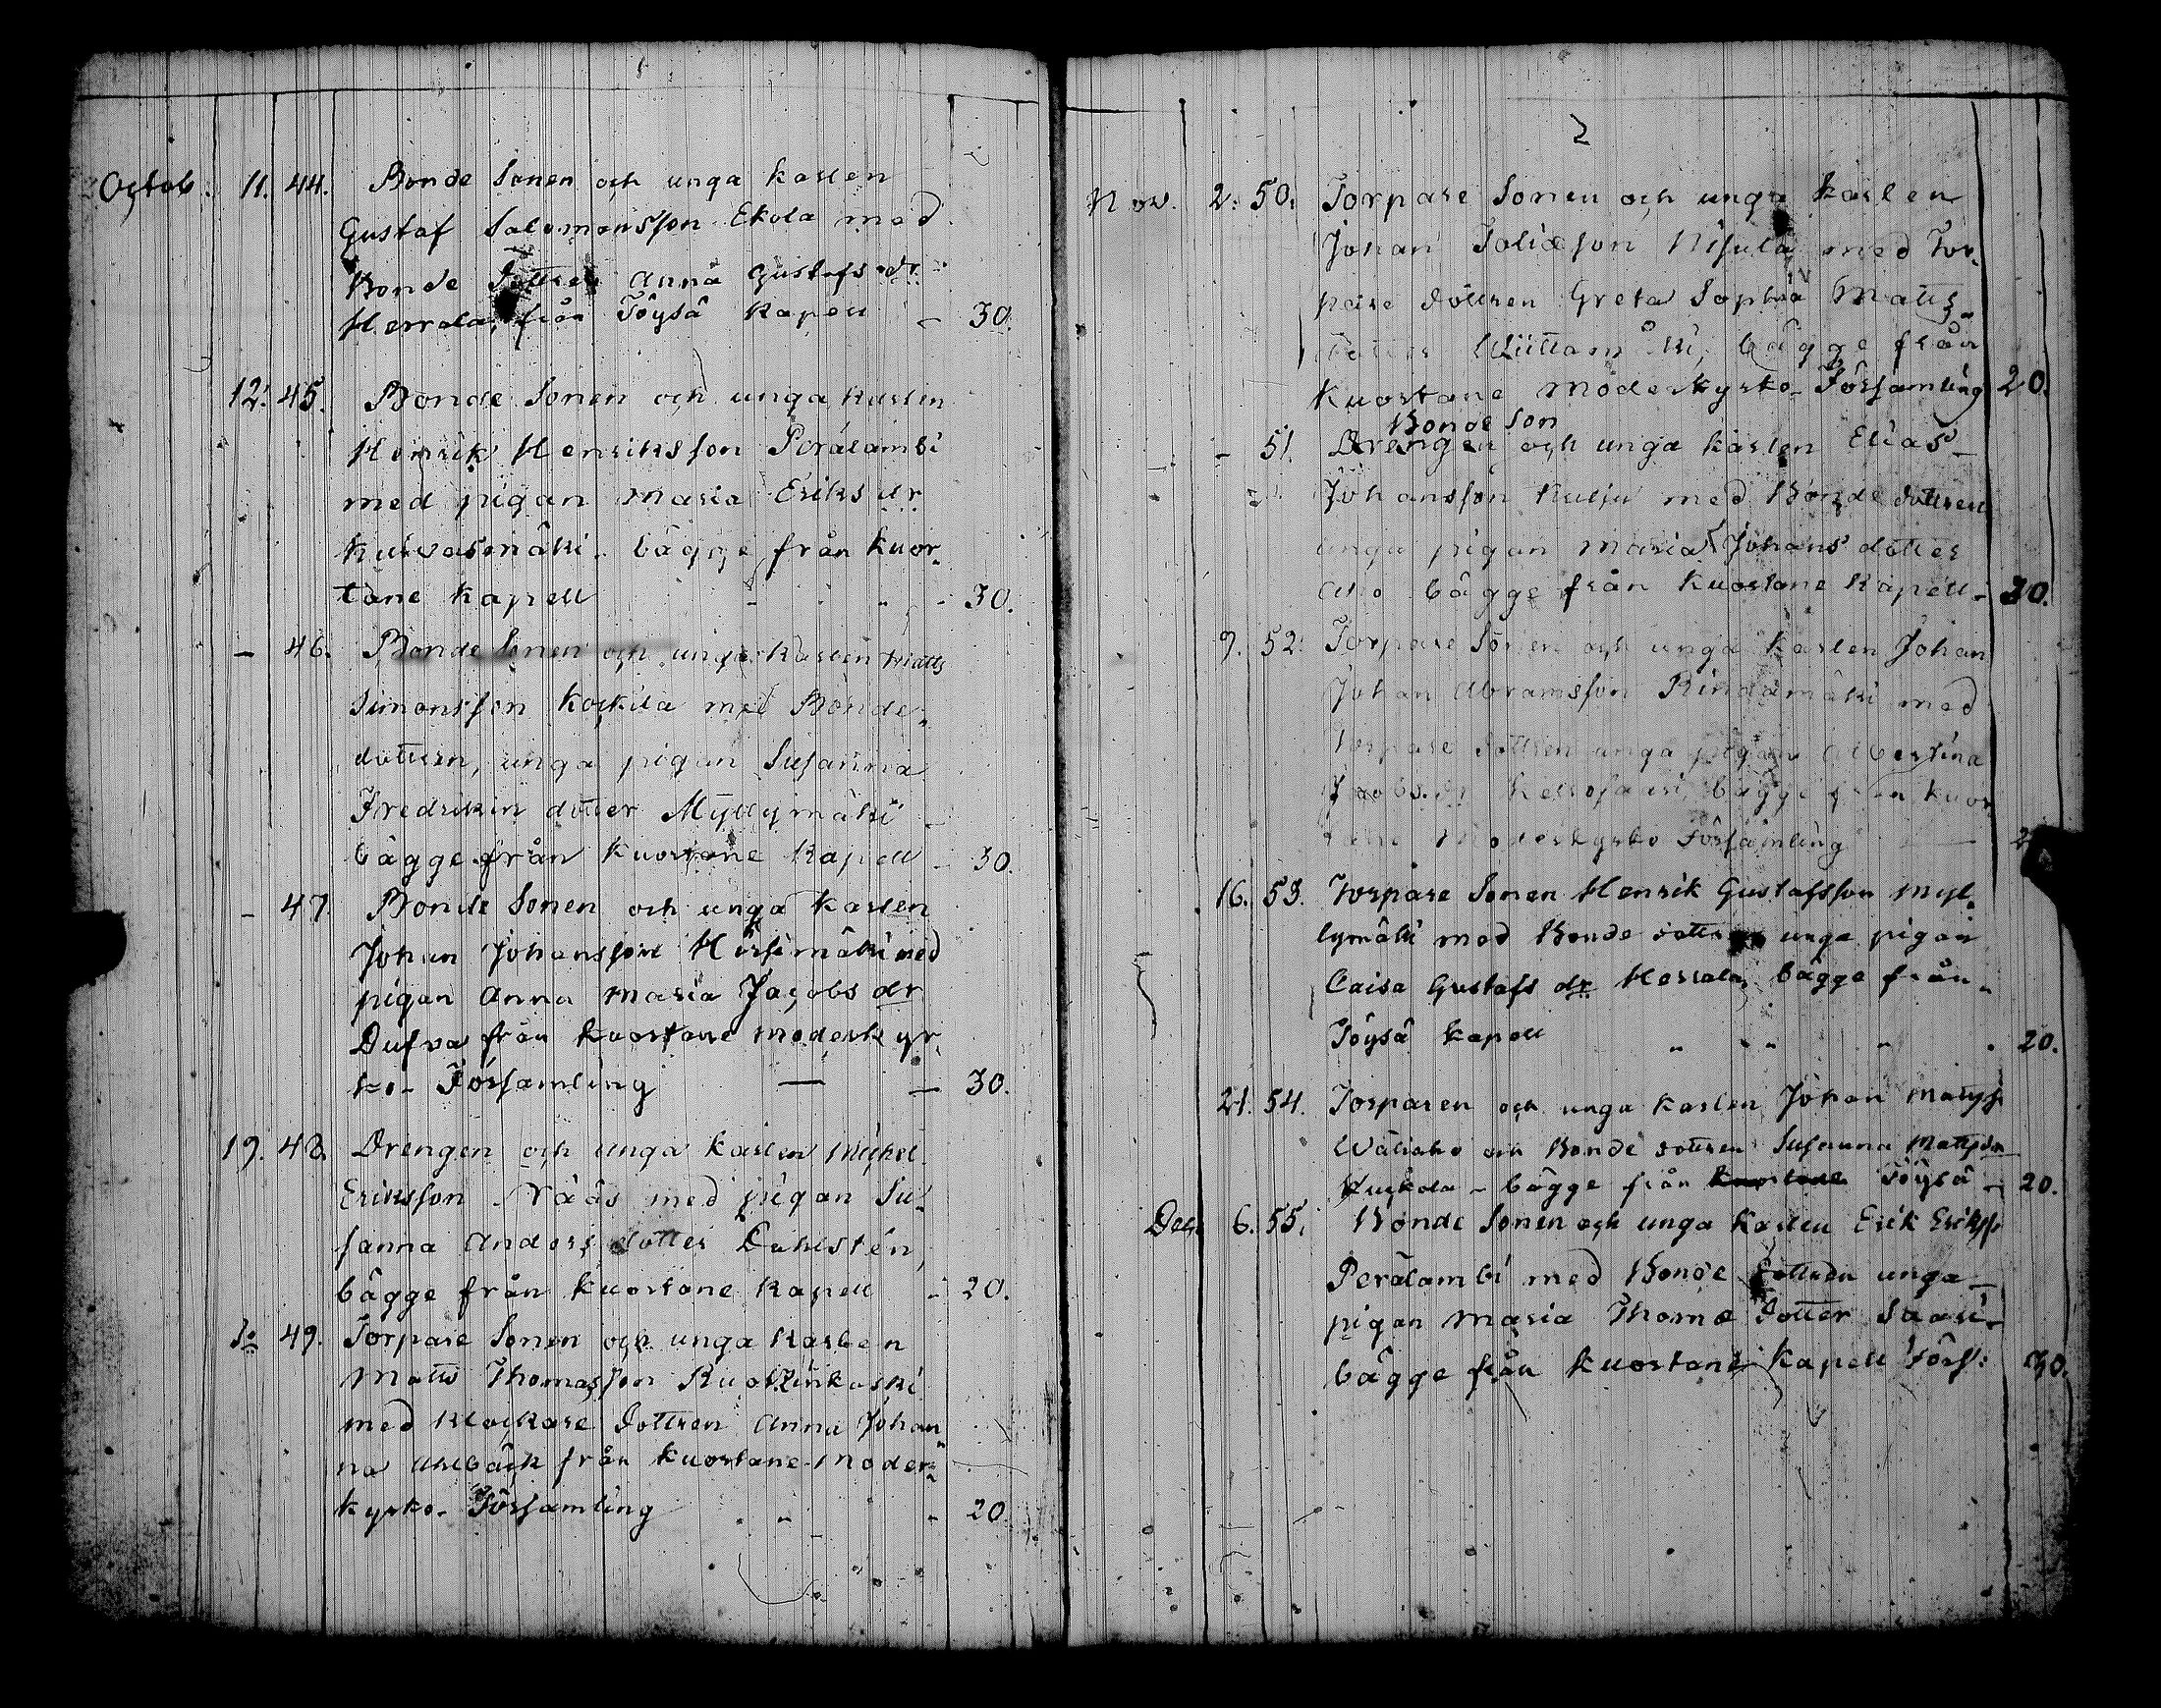 Octob. 11. 44. Bonde Sonen och unga karlen
Gustaf Salomonsson Ekola med
Bonde Dottren Anna Gustafs dr
Herrala, från Töysä Kapell - 30.
12. 45. Bonde Sonen och unga karlen
Henrik Henriksson Perälambi
med pigan Maria Eriks dr
bägge från Kuor-
tane Kapell - - - 30.
- 46. Bonde Sonen och unga karlen Matts
Simonsson Kockila med Bonde-
dottren, unga pigan Susanna
Fredrikin dotter Myllymäki
bägge från Kuortane Kapell - 30.
- 47. Bonde Sonen och unga karlen
Johan Johansson Hirsimäki med
pigan Anna Maria Jacobs dr
Dufva från Kuortane moderkyr-
ko- Församling — - 30.
19. 48. Drengen och unga karlen Michel
Eriksson Rääs med pigan Su-
sanna Anders dotter Dahlsten,
bägge från Kuortane Kapell - 20.
do 49. Torpare Sonen och unga karlen
Matts Thomasson
med klockare Dottren Anna Johan-
na från Kuortane Moder-
kyrko- Församling - - - 20
2
Nov. 2. 50. Torpare Sonen och unga karlen
Johan Nisula med Tor-
pare dottren Greta Sophia Matts
dotter bägge från
Kuortane Moderkyrko- Församling 20.
Bonde son
- 51. Drengen och unga karlen Elias
Johansson Kulju med Bonde dottren
unga pigan Maria Johans dotter
Aho bägge från Kuortane Kapell - 30.
9. 52. Torpare Sonen och unga karlen Johan
Johan Abramsson Rindamäki med
Torpare dottren unga pigan Albertina
Jacobs dr bägge från Kuor-
tane Moderkyrko Församling —
16. 53. Torpare Sonen Henrik Gustafsson Myl-
lymäki med Bonde dottren unga pigan
Caisa Gustafs dr Herrala, bägge från
Töysä Kapell - - - - 20.
21. 54. Torparen och unga karlen Johan Mattss
och Bonde dottren Susanna Matts dr
bägge från Kuortane Töysä - 20.
Dec. 6. 55. Bonde Sonen och unga Karlen Erik Erikss.
Perälambi med Bonde Dottren unga
pigan Maria Thomæ Dotter Saari
bägge från Kuortane Kapell Förs: 30.